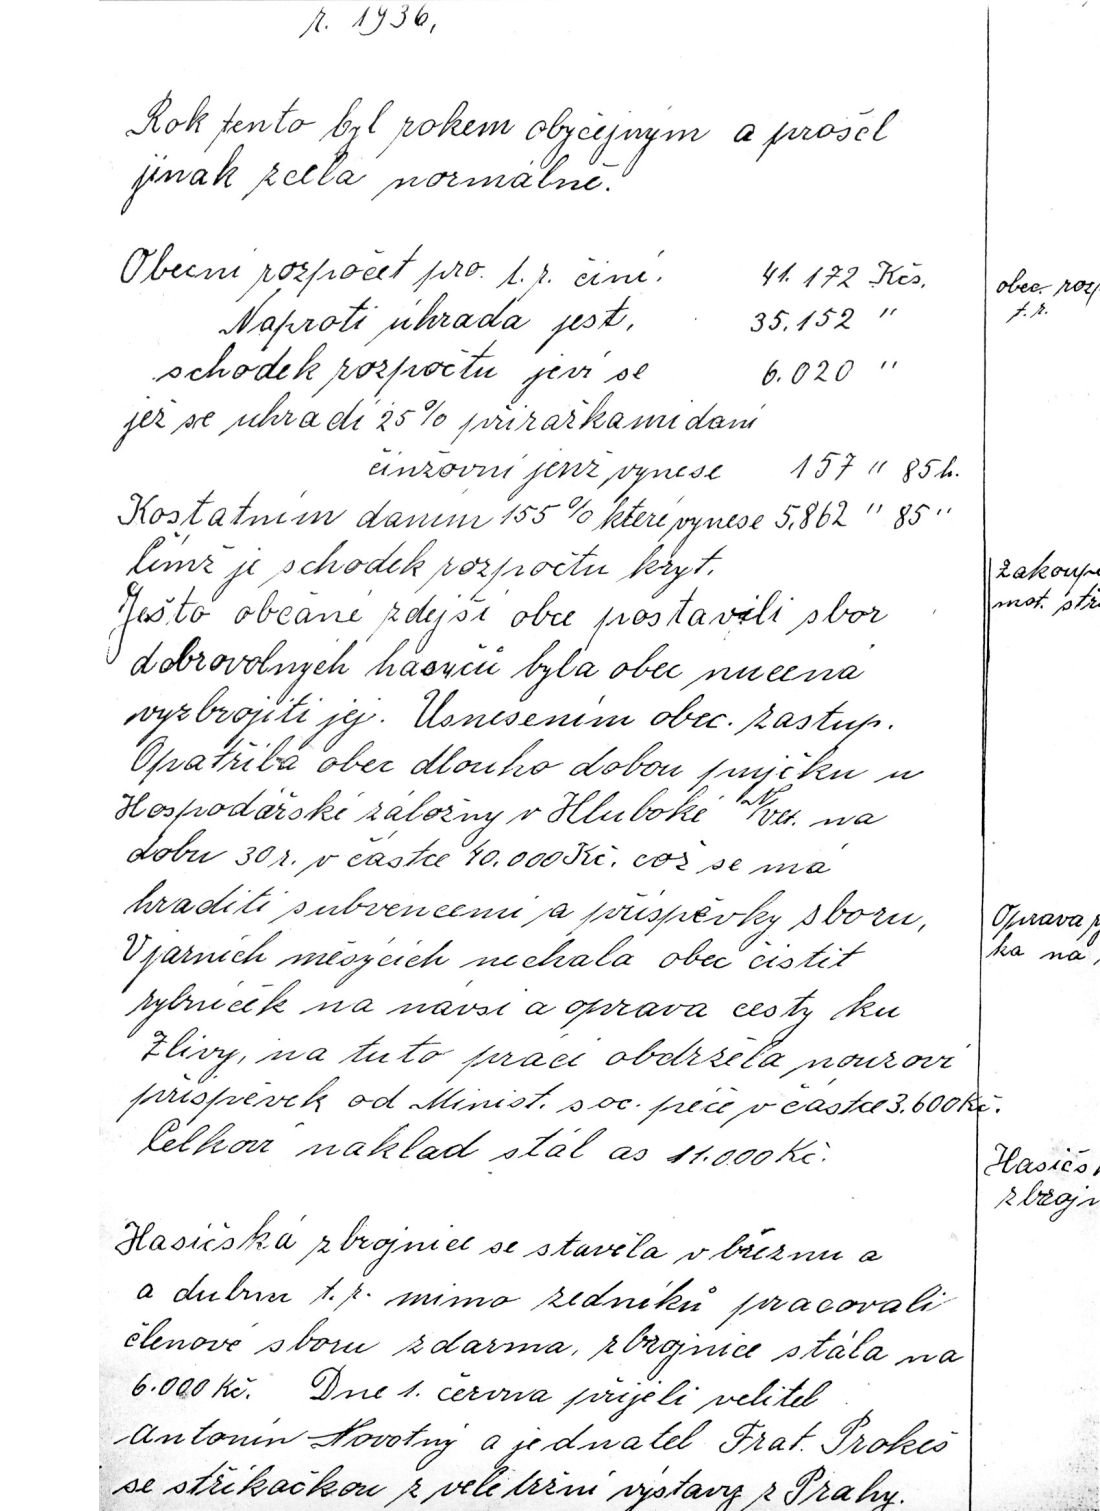 r. 1936,
Rok tento byl rokem obyčejným a prošel
jinak zcela normálně.
Obecní rozpočet pro. t. r. činí. 41.172 Kčs.
Naproti úhrada jest. 35.152 "
schodek rozpočtu jeví se 6.020 "
jež se uhradí 25% přirážkami daní
činžovní jenž vynese 157 " 85 h.
Kostatním daním 155% které vynese 5.862 " 85 "
čímž je schodek rozpočtu kryt.
Ješto občané zdejší obce postavili sbor
dobrovolných hasyčů byla obec nucená
vyzbrojiti jej. Usnesením obec. zastup.
Opatřila obec dlouho dobou pujčku u
Hospodářské záložny v Hluboké N/vlt. na
dobu 30 r. v částce 40.000 Kč. což se má
hraditi subvencemi a příspěvky sboru,
V jarních měsýcích nechala obec čistit
rybníček na návsi a oprava cesty ku
Zlivy, na tuto práci obdržela nouzoví
příspěvek od Minist. soc. péče v částce 3.600 Kč.
Celkoví náklad stál as 11.000 Kč.
Hasičská zbrojnice se stavěla v březnu a
a dubnu t. r. mimo zedníků pracovali
členové sboru zdarma, zbrojnice stála na
6.000 Kč. Dne 1. června přijeli velitel
Antonín Novotný a jednatel Frat. Prokeš
se stříkačkou z veletržní výstavy z Prahy.
obec. rozp
t. r.
Zakoupe
mot. stří
Oprava r
ka na
Hasičs
zbrojn